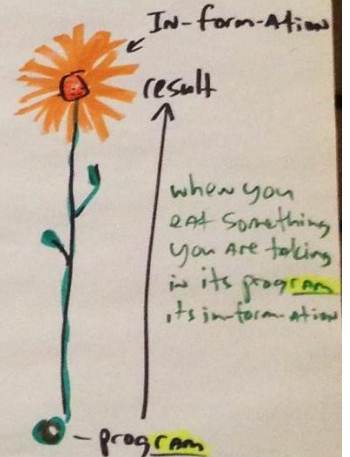 IN-form-Ation
result
when you
eat something
you are taking
in its program
its in-form-ation
program